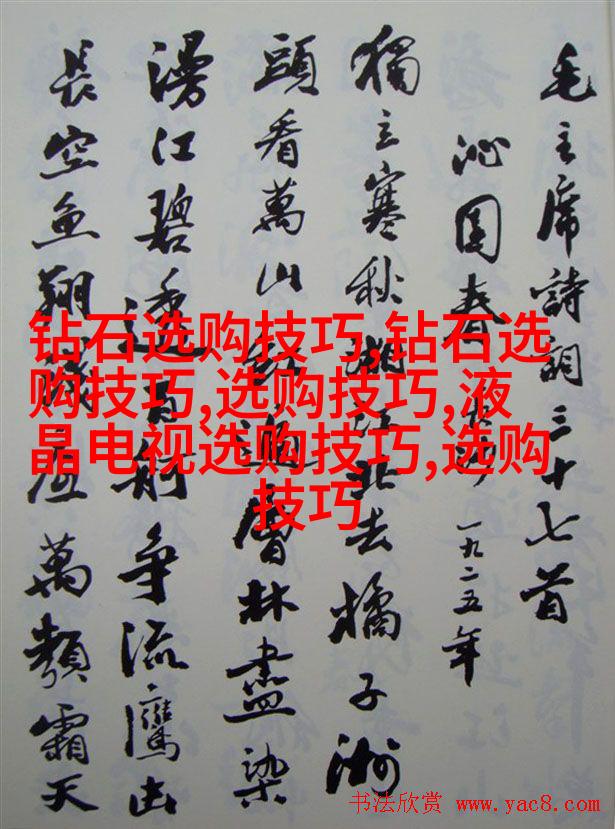 毛主席詩詞三十七首
沁园春 长沙 一九二五年
獨立寒秋湘江北去橘子洲
頭看萬山红遍層林盡染
漫江碧透百舸争流鷹击
長空鱼翔淺底萬類霜天
钻石选购技巧,钻石选
购技巧,选购技巧,液
晶电视选购技巧,选购
技巧
书法欣赏 www.yac8.com